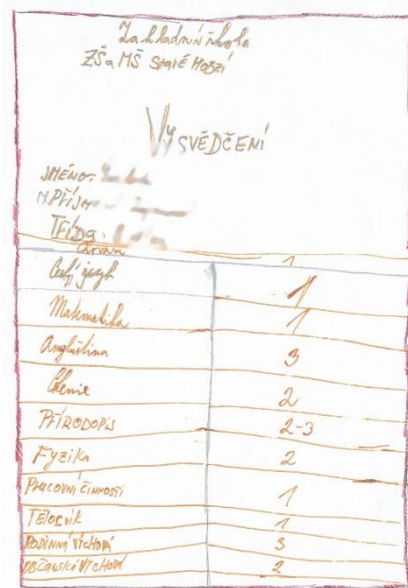 Základní škola
ZŠ a MŠ Staré Hobzí
Vysvědčení
JMÉNO:
PŘÍJM
TŘÍDA:
Chování 1
Český jazyk 1
Matematika 1
Angličtina 3
Chemie 2
PŘÍRODOPIS 2-3
Fyzika 2
PRACOVNÍ ČINNOSTI 1
TĚLOCVIK 1
RODINNÁ VÝCHOVA 3
OBČANSKÁ VÝCHOVA 2